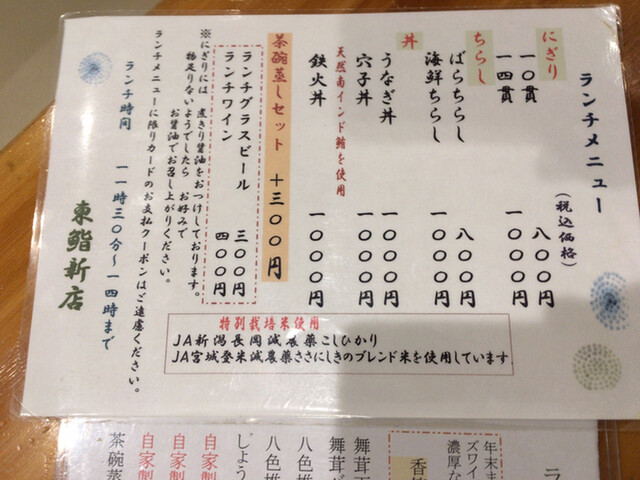 ランチメニュー
(税込価格)
にぎり
一〇貫 八〇〇円
一四貫 一〇〇〇円
ちらし
ばらちらし 八〇〇円
海鮮ちらし 一〇〇〇円
丼
うなぎ丼 一〇〇〇円
穴子丼 一〇〇〇円
天然南インド鮪を使用
鉄火丼 一〇〇〇円
茶碗蒸しセット +三〇〇円
ランチグラスビール 三〇〇円
ランチワイン 四〇〇円
※にぎりには 煮きり醤油をおつけしております。
物足りないようでしたら お好みで
お醤油でお召し上がりください。
ランチメニューに限りカードのお支払クーポンはご遠慮ください。
ランチ時間 一一時三〇分〜一四時まで
東鮨新店
特別栽培米使用
JA新潟長岡減農薬こしひかり
JA宮城登米減農薬ささにしきのブレンド米を使用しています
ラ
年末ま
ズワイ
濃厚な
舞茸
舞茸
八色椎
八色椎
じょう
自家製
自家製
自家製
茶碗蒸